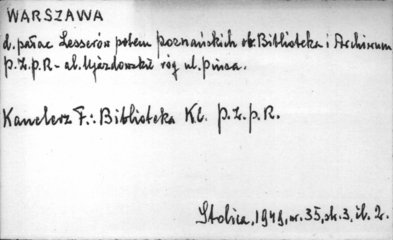 WARSZAWA
d. pałac Lesserów potem poznańskich ob. Biblioteka i Archiwum
P.Z.P.R - al. Ujazdowski róg ul. Piusa.
Kanclerz F.: Biblioteka KC. P.Z.P.R.
Stolica, 1949, nr. 35, sk. 3, il. 2.